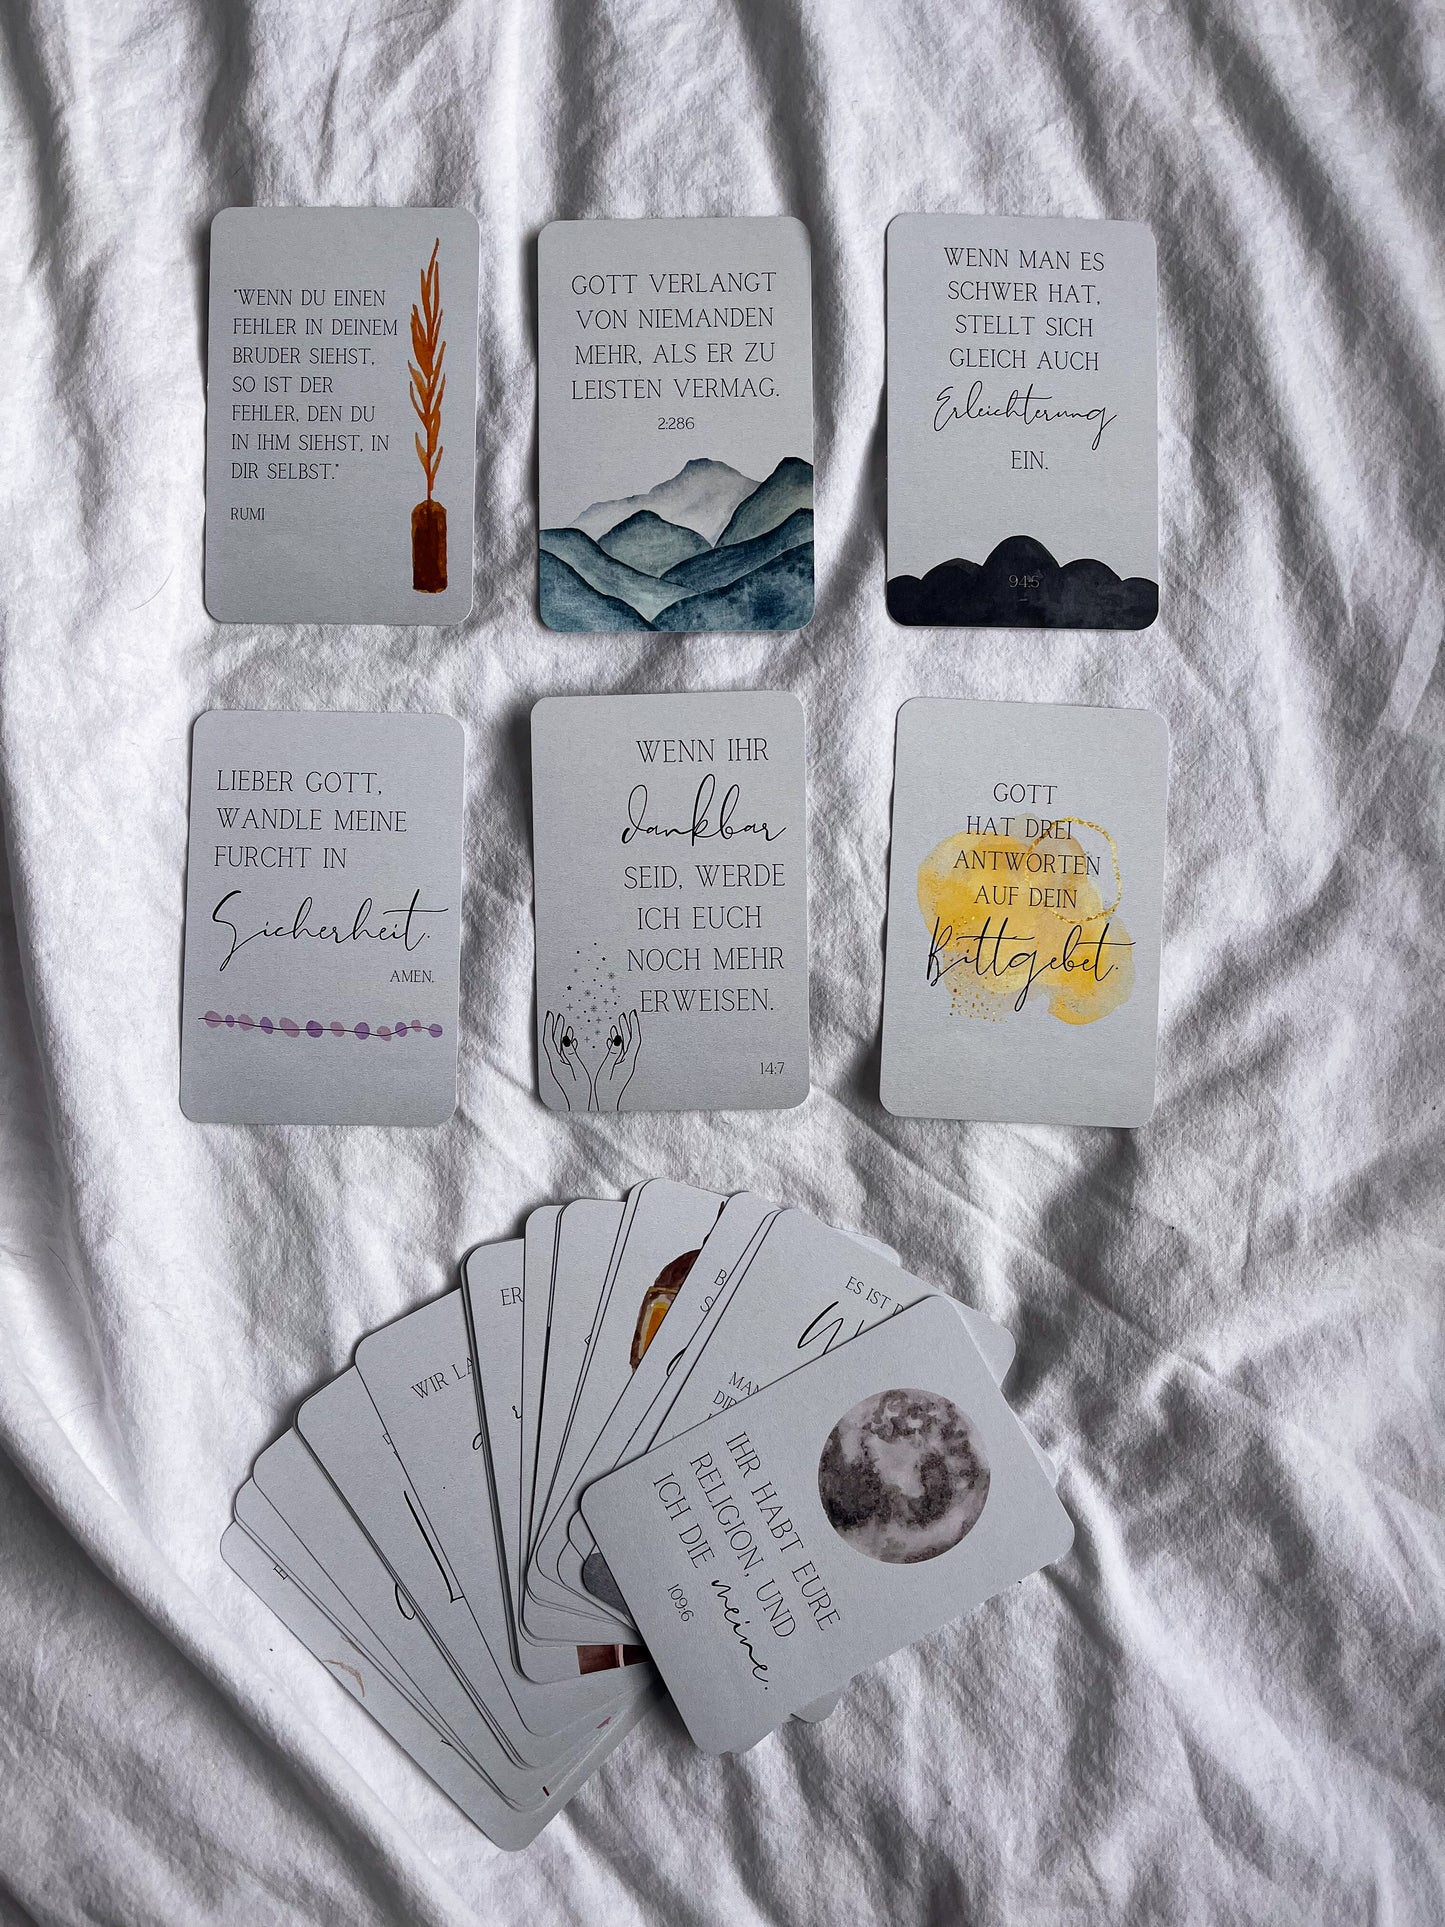 "WENN DU EINEN
FEHLER IN DEINEM
BRUDER SIEHST,
SO IST DER
FEHLER, DEN DU
IN IHM SIEHST, IN
DIR SELBST."
RUMI
GOTT VERLANGT
VON NIEMANDEN
MEHR, ALS ER ZU
LEISTEN VERMAG.
2:286
WENN MAN ES
SCHWER HAT,
STELLT SICH
GLEICH AUCH
Erleichterung
EIN.
94:5
LIEBER GOTT,
WANDLE MEINE
FURCHT IN
Sicherheit.
AMEN.
WENN IHR
dankbar
SEID, WERDE
ICH EUCH
NOCH MEHR
ERWEISEN.
14:7
GOTT
HAT DREI
ANTWORTEN
AUF DEIN
Bittgebet.
ER
WIR LA
ES IST D
MAN
DIR
IHR HABT EURE
RELIGION, UND
ICH DIE meine.
109:6